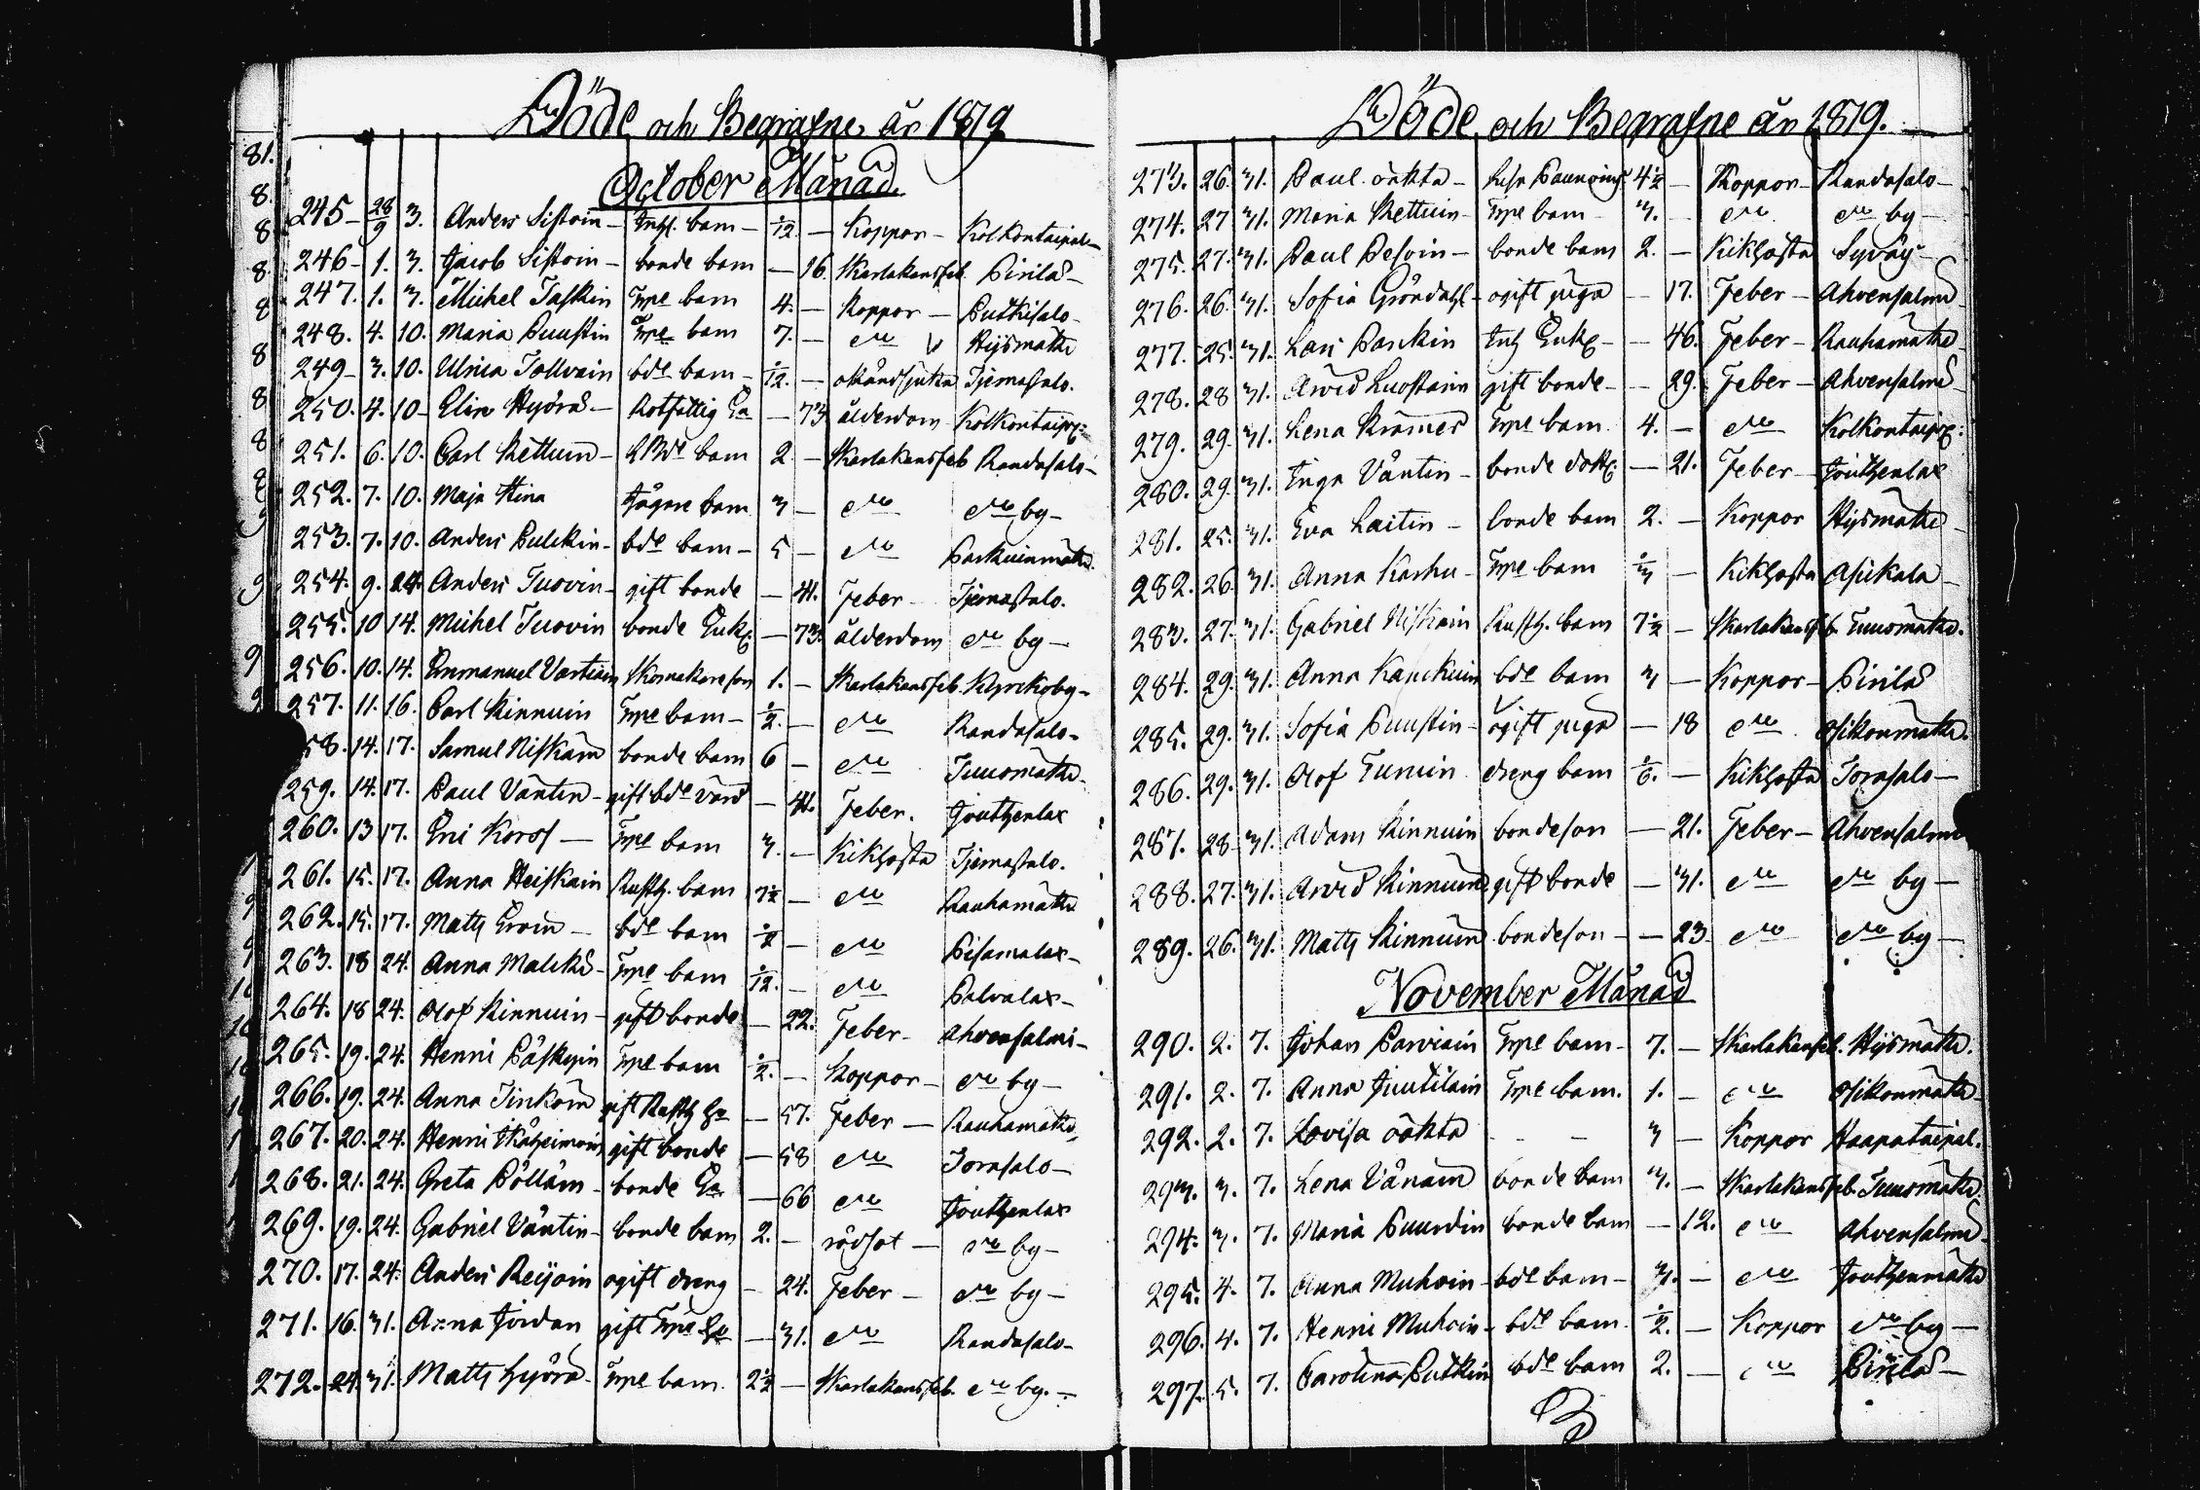 Döde och Begrafne år 1819
October Månad
245 – 28/9 3. Anders Sistoin – Inhs. barn – 1/12 – Koppor – Kolkontaipal –
246 – 1. 3. Jacob Sistoin – bonde barn – 16. Skarlakansfeb. Pirilä –
247. 1. 3. Michel Taskin Trpe barn 4. – Koppor – Putkisalo –
248. 4. 10. Maria Puustin Trpe barn 7. – dito Hysmäki
249 – 3. 10. Ulrica Tollvain bde barn – 1/12. – okändsjuka Tjemassalo.
250. 4. 10 – Elin Hyörä – Rotfattig Ea – 73 ålderdom Kolkontaip:
251. 6. 10. Carl Kettuin – bde barn 2 – Skarlakansfeb Randasalo –
252. 7. 10. Maja Stina Jägare barn 3 – dito dito by –
253. 7. 10. Anders Pulckin – bde barn – 5 – dito Parkuinmäki
254. 9. 14. Anders Tuovin – gift bonde – 41. Feber – Tjemassalo.
255. 10 14. Michel Tuovin bonde Enk: – 73. ålderdom dito by –
256. 10. 14. Emmanuel Vartiain Skomakareson 1. – Skarlakansfeb. Kyrckoby –
257. 11. 16. Carl Kinnuin Trpe barn – 1/2. – dito Randasalo –
58. 14. 17. Samul Niskain bonde barn 6 – dito Tuusmäki –
259. 14. 17. Paul Väntin – gift bde värd – 41. Feber. Joutzenlax
260. 13 17. Eric Koros – Trpe barn 3. – Kikhosta Tjemassalo.
261. 15. 17. Anna Heiskain Rusth. barn 7 1/2 – dito Rauhamäki
262. 15. 17. Matts Eroin – bde barn 1/2 – dito Pisamalax –
263. 18 24. Anna Malcki – Trpe barn 1/12. – dito Palvalax –
264. 18 24. Olof Kinnuin – gift bonde – 22. Feber – Ahvensalmi –
265. 19. 24. Henric Päskyin Trpe barn 1/2. – Koppor – dito by –
266. 19. 24. Anna Tinkain gift Rusth Ea – 57. Feber – Rauhamäki
267. 20. 24. Henric gift bonde – 58 dito Torasalo –
268. 21. 24. Greta Pölläin – bonde Ea – 66 dito Joutzenlax
269. 19. 24. Gabriel Väntin – bonde barn 2. – rödsot – dito by –
270. 17. 24. Anders Reijoin ogift dreng – 24. Feber – dito by –
271. 16. 31. Anna Jordan gift Trpe Ea – 31. dito Randasalo –
272. 24. 31. Matts Hyörä – Trpe barn. 2 1/2 – Skarlakansfeb. dito by. –
Döde och Begrafne år 1819.
273. 26. 31. Paul oäkta – 4 1/2 – Koppor – Randasalo –
274. 27 31. Maria Kettuin – Trpe barn – 3. – dito dito by –
275. 27. 31. Paul Pesoin – bonde barn 2. – Kikhosta Syväy –
276. 26. 31. Sofia Gröndahl – ogift piga – 17. Feber – Ahvensalmi
277. 25. 31. Lars Parckin Inh Enk: – 46. Feber – Rauhamäki –
278. 28 31. Arvid Luostarin gift bonde – 29. Feber – Ahvensalmi
279. 29. 31. Lena Krämer Trpe barn. 4. – dito Kolkontaip:
280. 29. 31. Inga Väntin – bonde dott: – 21. Feber – Joutzenlax
281. 25. 31. Eva Laitin – bonde barn 2. – Koppor Hysmäki –
282. 26. 31. Anna Karhu – Trpe barn 1/3 – Kikhosta Asickala –
283. 27. 31. Gabriel Niskain Rusth. barn 7 1/2 – Skarlakansfeb. Tuusmäki.
284. 29. 31. Anna Kanckuin bde barn 3 – Koppor – Pirilä
285. 29. 31. Sofia Puustin – ogift piga – 18 dito Osikonmäki.
286. 29. 31. Olof Tursin dreng barn 1/6. – Kikhosta Torasalo –
287. 28 31. Adam Kinnuin bondeson – 21. Feber – Ahvensalmi
288. 27. 31. Arvid Kinnuin gift bonde – 31. dito dito by –
289. 26. 31. Matts Kinnuin bondeson – – 23 dito dito by –
November Månad
290. 2. 7. Johan Parviain Trpe barn – 7. – Skarlakansfeb. Hysmäki.
291. 2. 7. Anna Juutilain Trpe barn. 1. – dito Osikonmäki –
292. 2. 7. Lovisa oäkta – – 3 – Koppor Haapataipal.
293. 3. 7. Lena Vänäin bonde barn 3. – Skarlakansfeb. Tuusmäki.
294. 3. 7. Maria Puurdin bonde barn – 12. dito Ahvensalmi –
295. 4. 7. Anna Muhoin – bde barn – 3. – dito Joutzenmäki
296. 4. 7. Henric Muhoin – bde barn – 1/2. – Koppor dito by –
297. 5. 7. Carolina Putkin bde barn 2. – dito Pirilä –